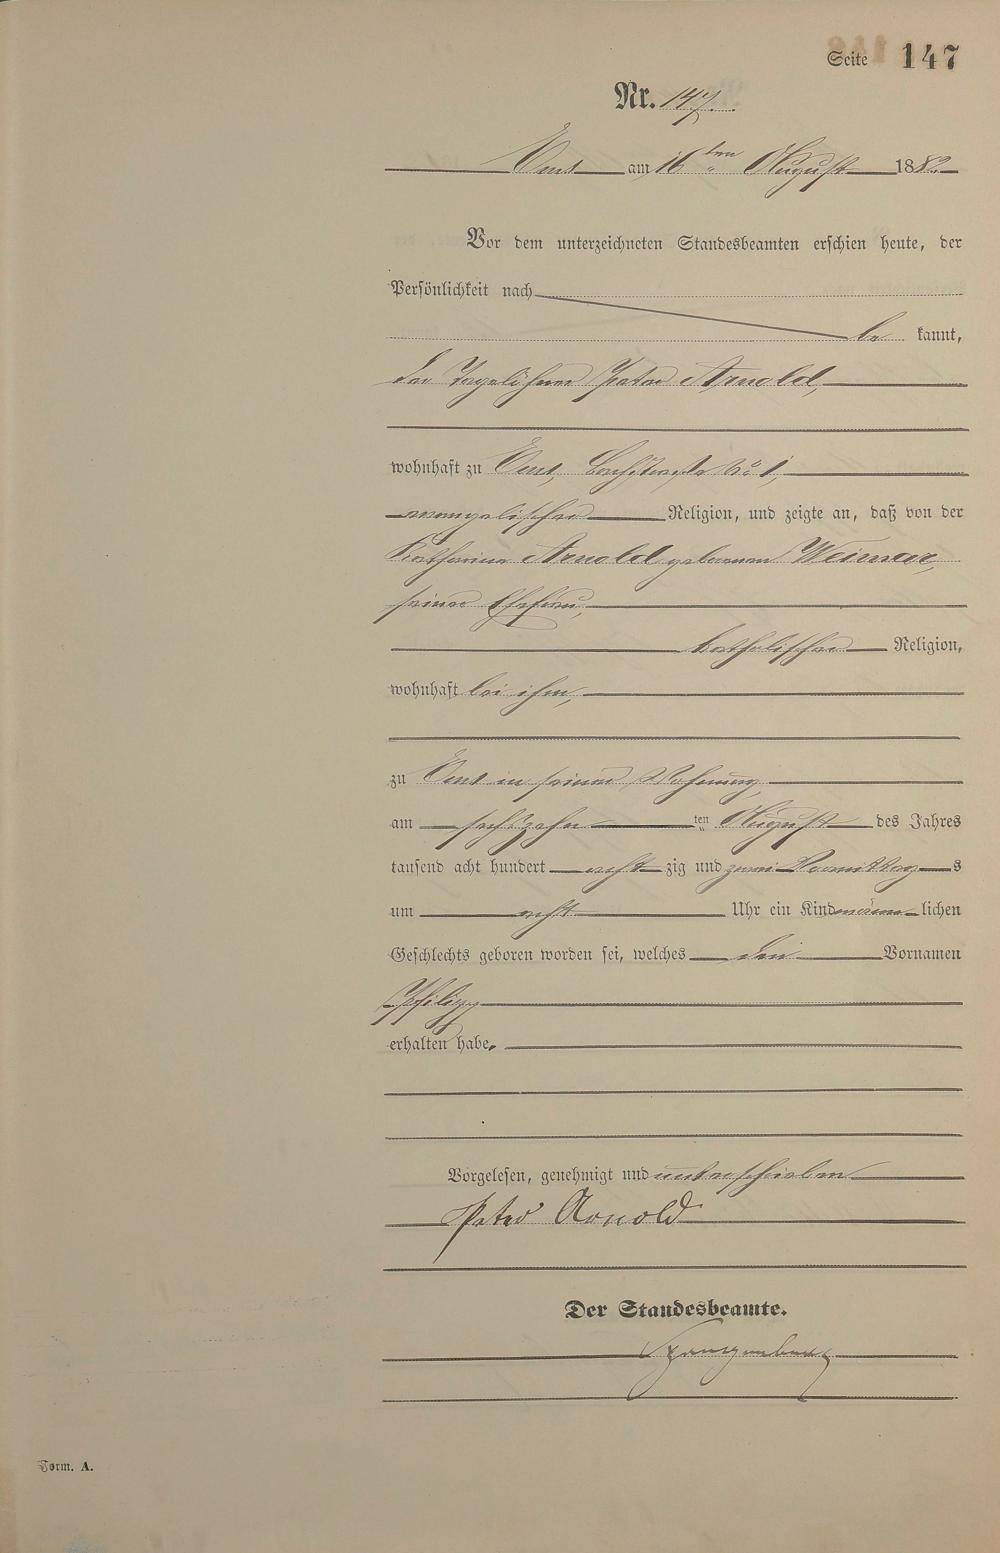 Seite 147
Nr. 147.
Ems am 16ten August 1882
Vor dem unterzeichneten Standesbeamten erschien heute, der
Persönlichkeit nach
be kannt,
der Tagelöhner Peter Arnold,
wohnhaft zu Ems, No 1,
evangelischer Religion, und zeigte an, daß von der
Katharina Arnold geborenen Weimar,
seiner Ehefrau,
katholischer Religion,
wohnhaft bei ihm,
zu Ems in seiner Wohnung,
am sechszehn ten August des Jahres
tausend acht hundert acht zig und zwei Vormittag s
um acht Uhr ein Kind männ lichen
Geschlechts geboren worden sei, welches den Vornamen
Philipp
erhalten habe.
Vorgelesen, genehmigt und unterschrieben
Peter Arnold
Der Standesbeamte.
Form. A.